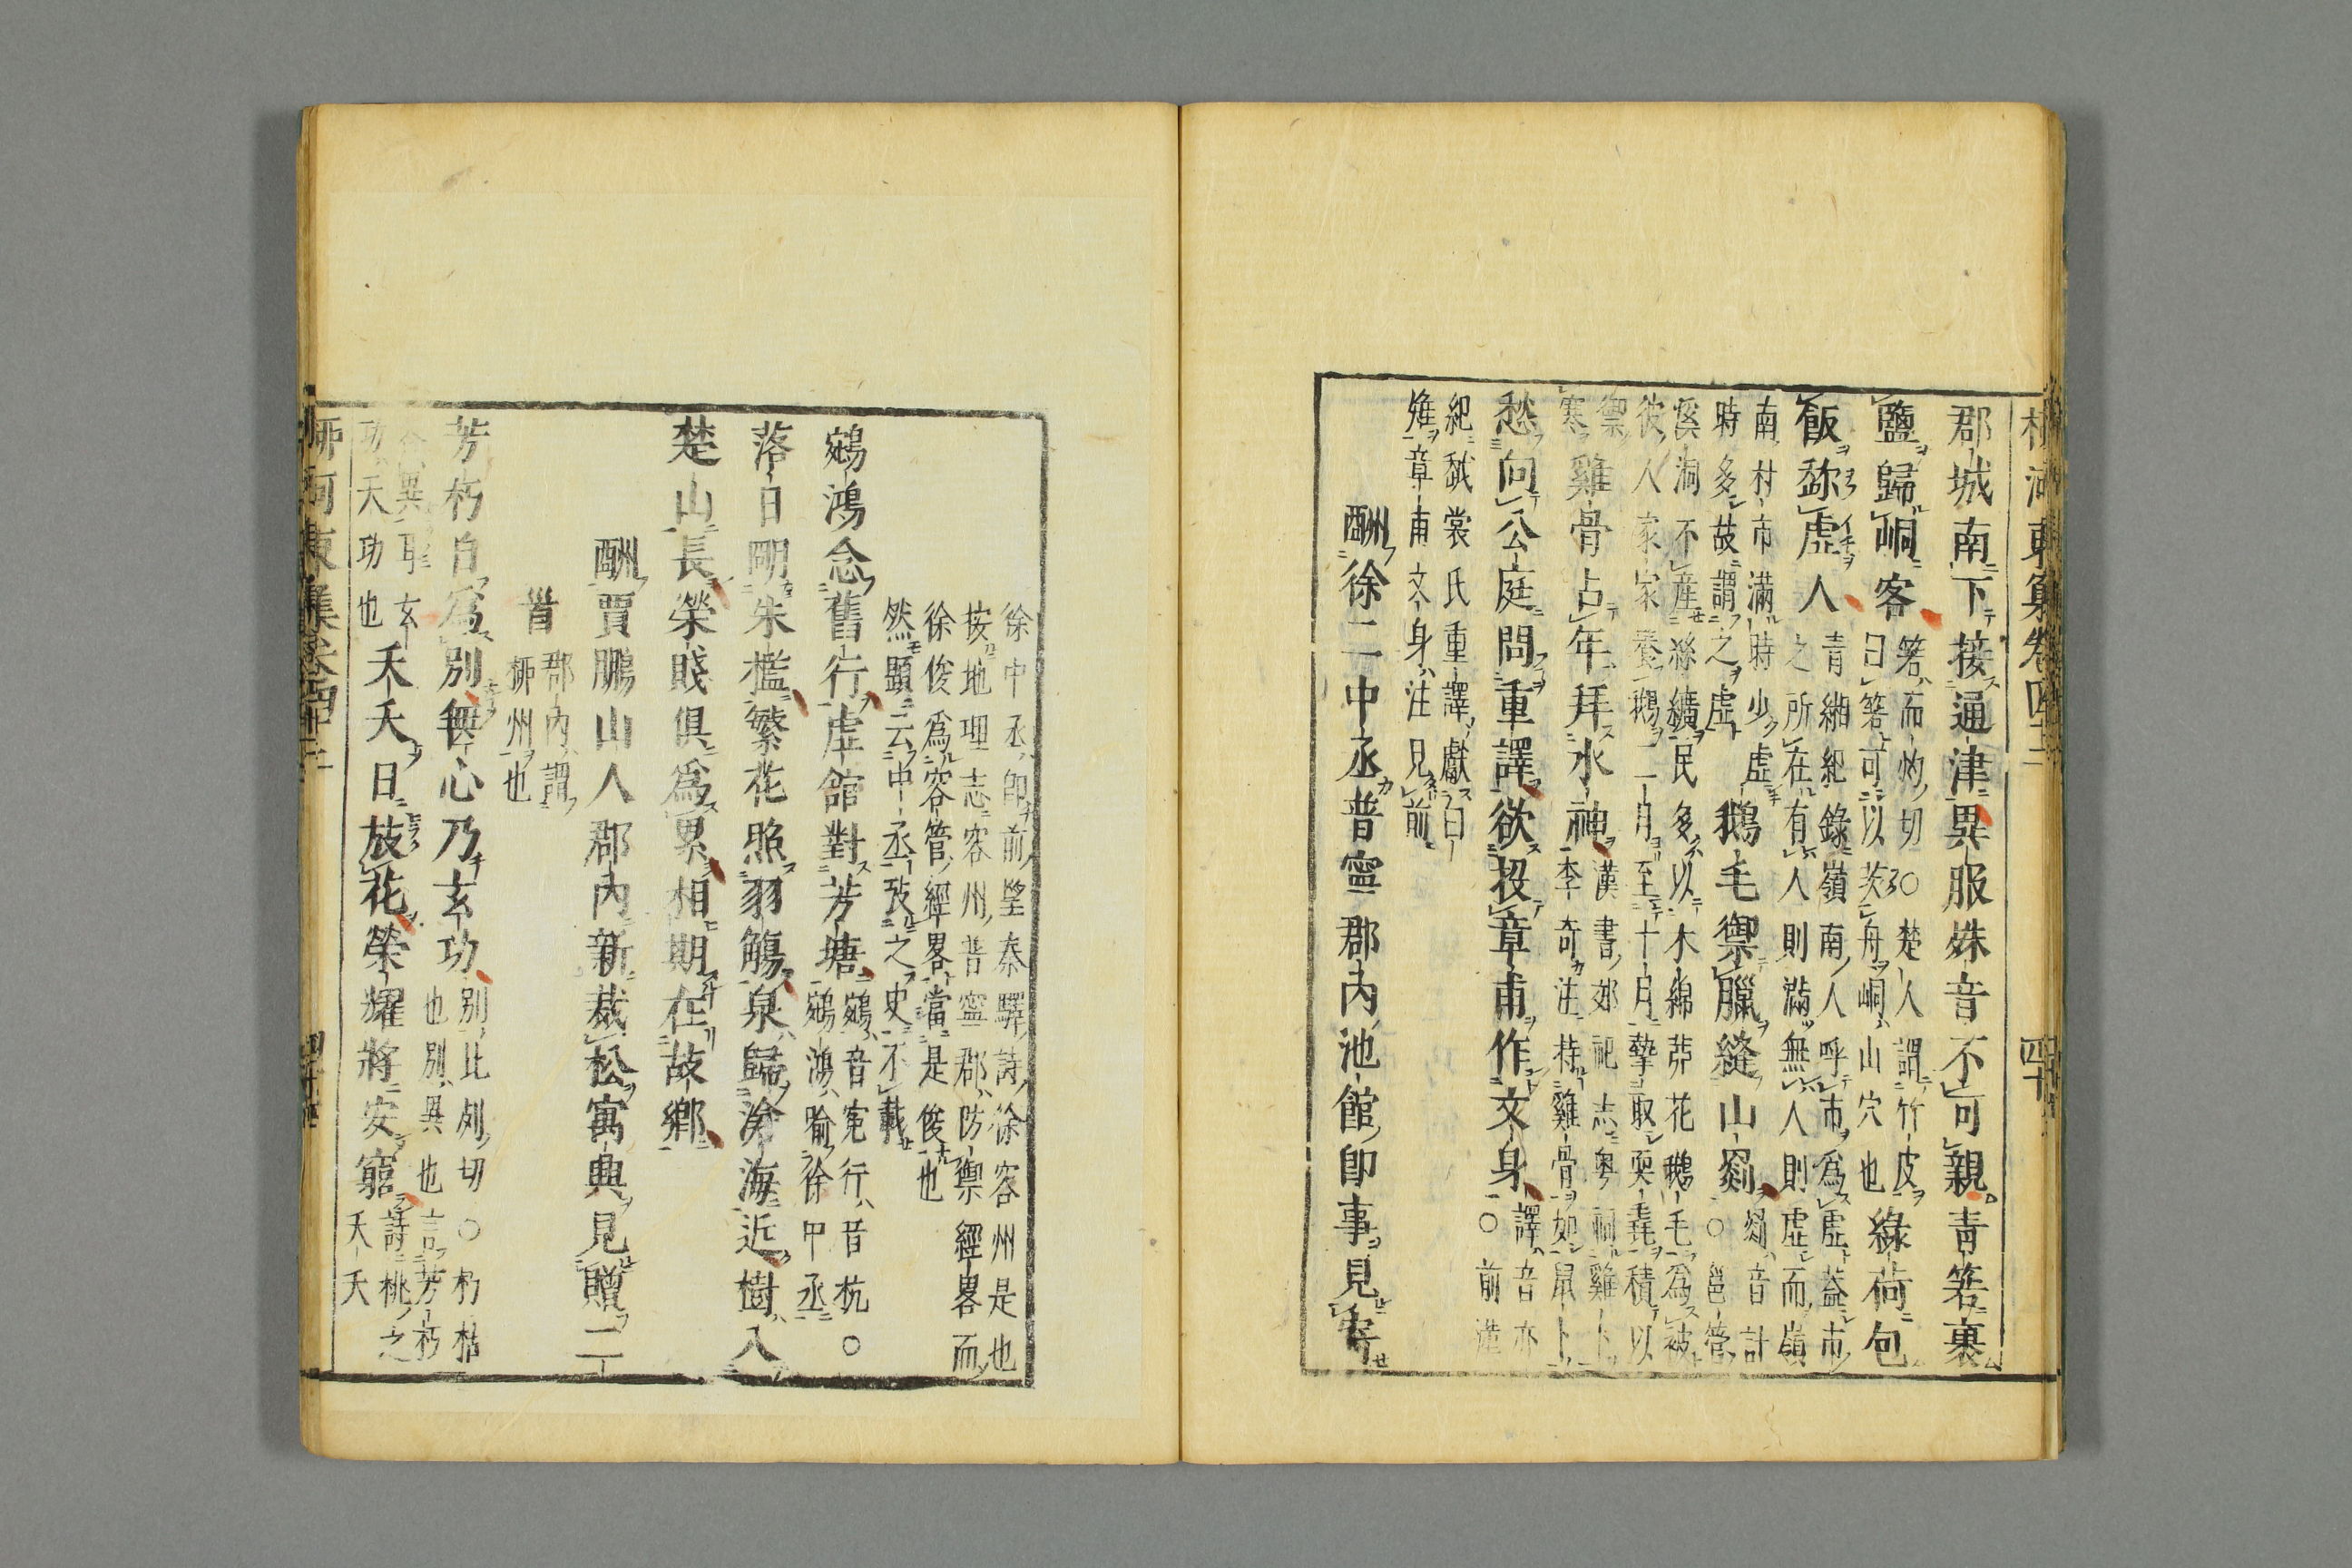 郡城南下接通津異服姝音不可親青箬裹
鹽歸峒客箬而灼切○楚人謂竹皮
曰箬可以茨舟峒山穴也綠荷包
飯𧺆虛人青緗紀錄嶺南人呼市爲虛葢市
之所在有人則滿無人則虛而嶺
南村市滿時少虛
時多故謂之虛鵝毛禦臘縫山罽罽音計
○邕管
溪洞不產絲纊民多以木綿茆花鵝毛爲被
彼人家家養鵝二月至十月擊取耎毳積以
禦
寒雞骨占年拜水神漢書郊祀志粤祠雞卜
李奇注持雞骨如鼠卜
愁向公庭問重譯欲投章甫作文身譯音亦
○前漢
紀越裳氏重譯獻白
雉章甫文身注見前
酬徐二中丞普寧郡內池館卽事見寄
徐中丞卽前望秦驛詩徐容州是也
按地理志容州普寧郡防禦經畧而
徐俊爲容管經畧當是俊也
然顯云中丞攷之史不載
鵷鴻念舊行虛館對芳塘鵷音寃行音杭○
鵷鴻喻徐中丞
落日明朱檻繁花照羽觴泉歸滄海近樹入
楚山長榮賤俱爲累相期在故鄉
酬賈鵬山人郡內新栽松寓興見贈二
首郡內謂
柳州也
芳朽自爲別無心乃玄功別比列切○朽枯
也別異也言芳朽
合異耴玄
功天功也夭夭日放花榮耀將安窮詩桃之
夭夭
柳河東集卷四十二